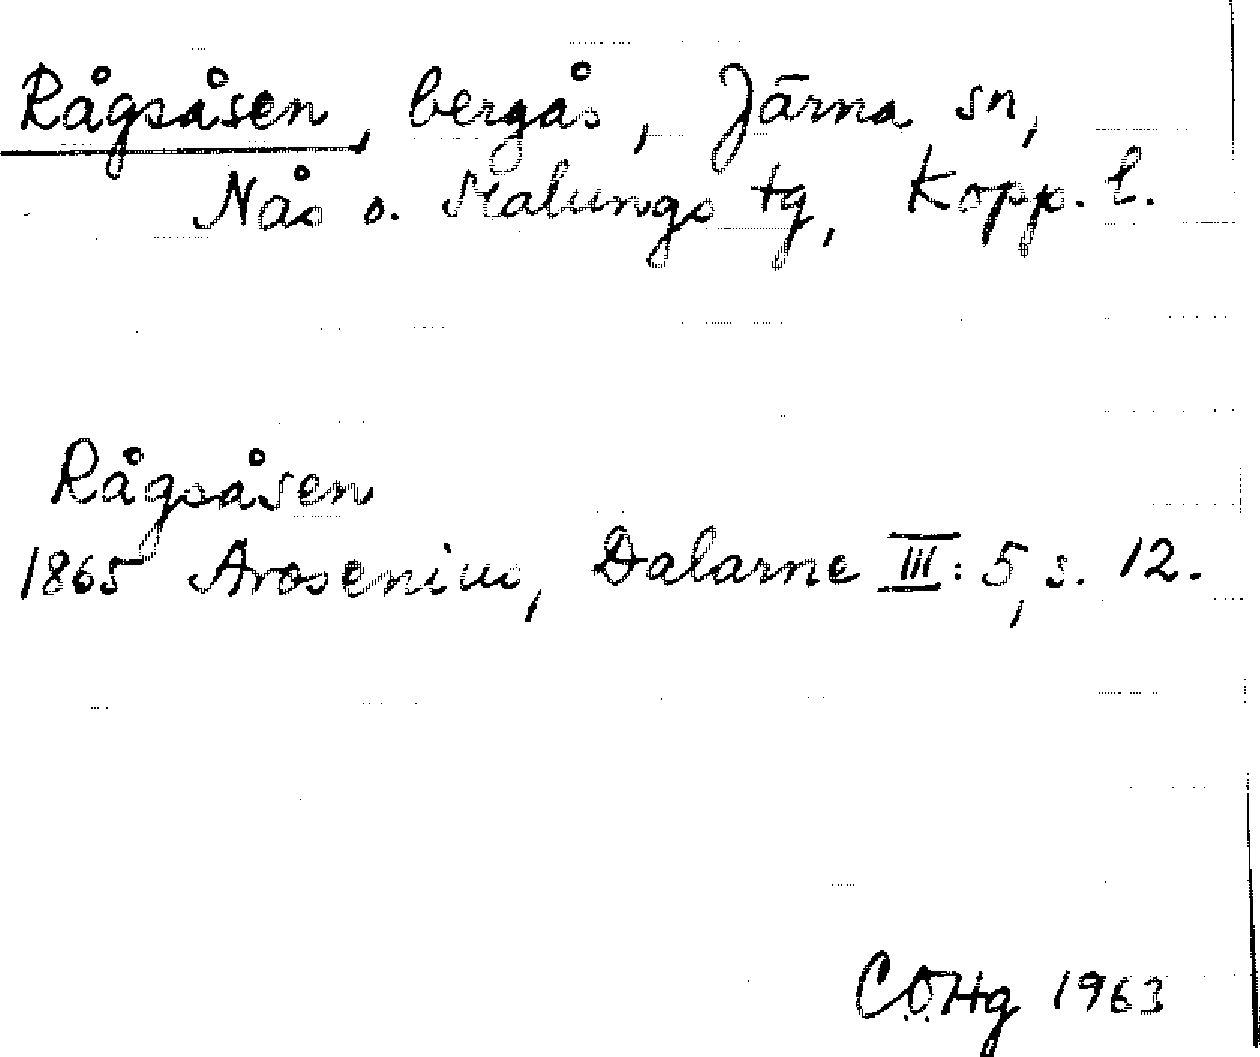 Rågsåsen, bergås, Järna sn,
Nås o. Malungs tg, Kopp. l.
Rågsåsen
1865 Arosenius, Dalarne III: 5, s. 12.
C.O.Hg 1963